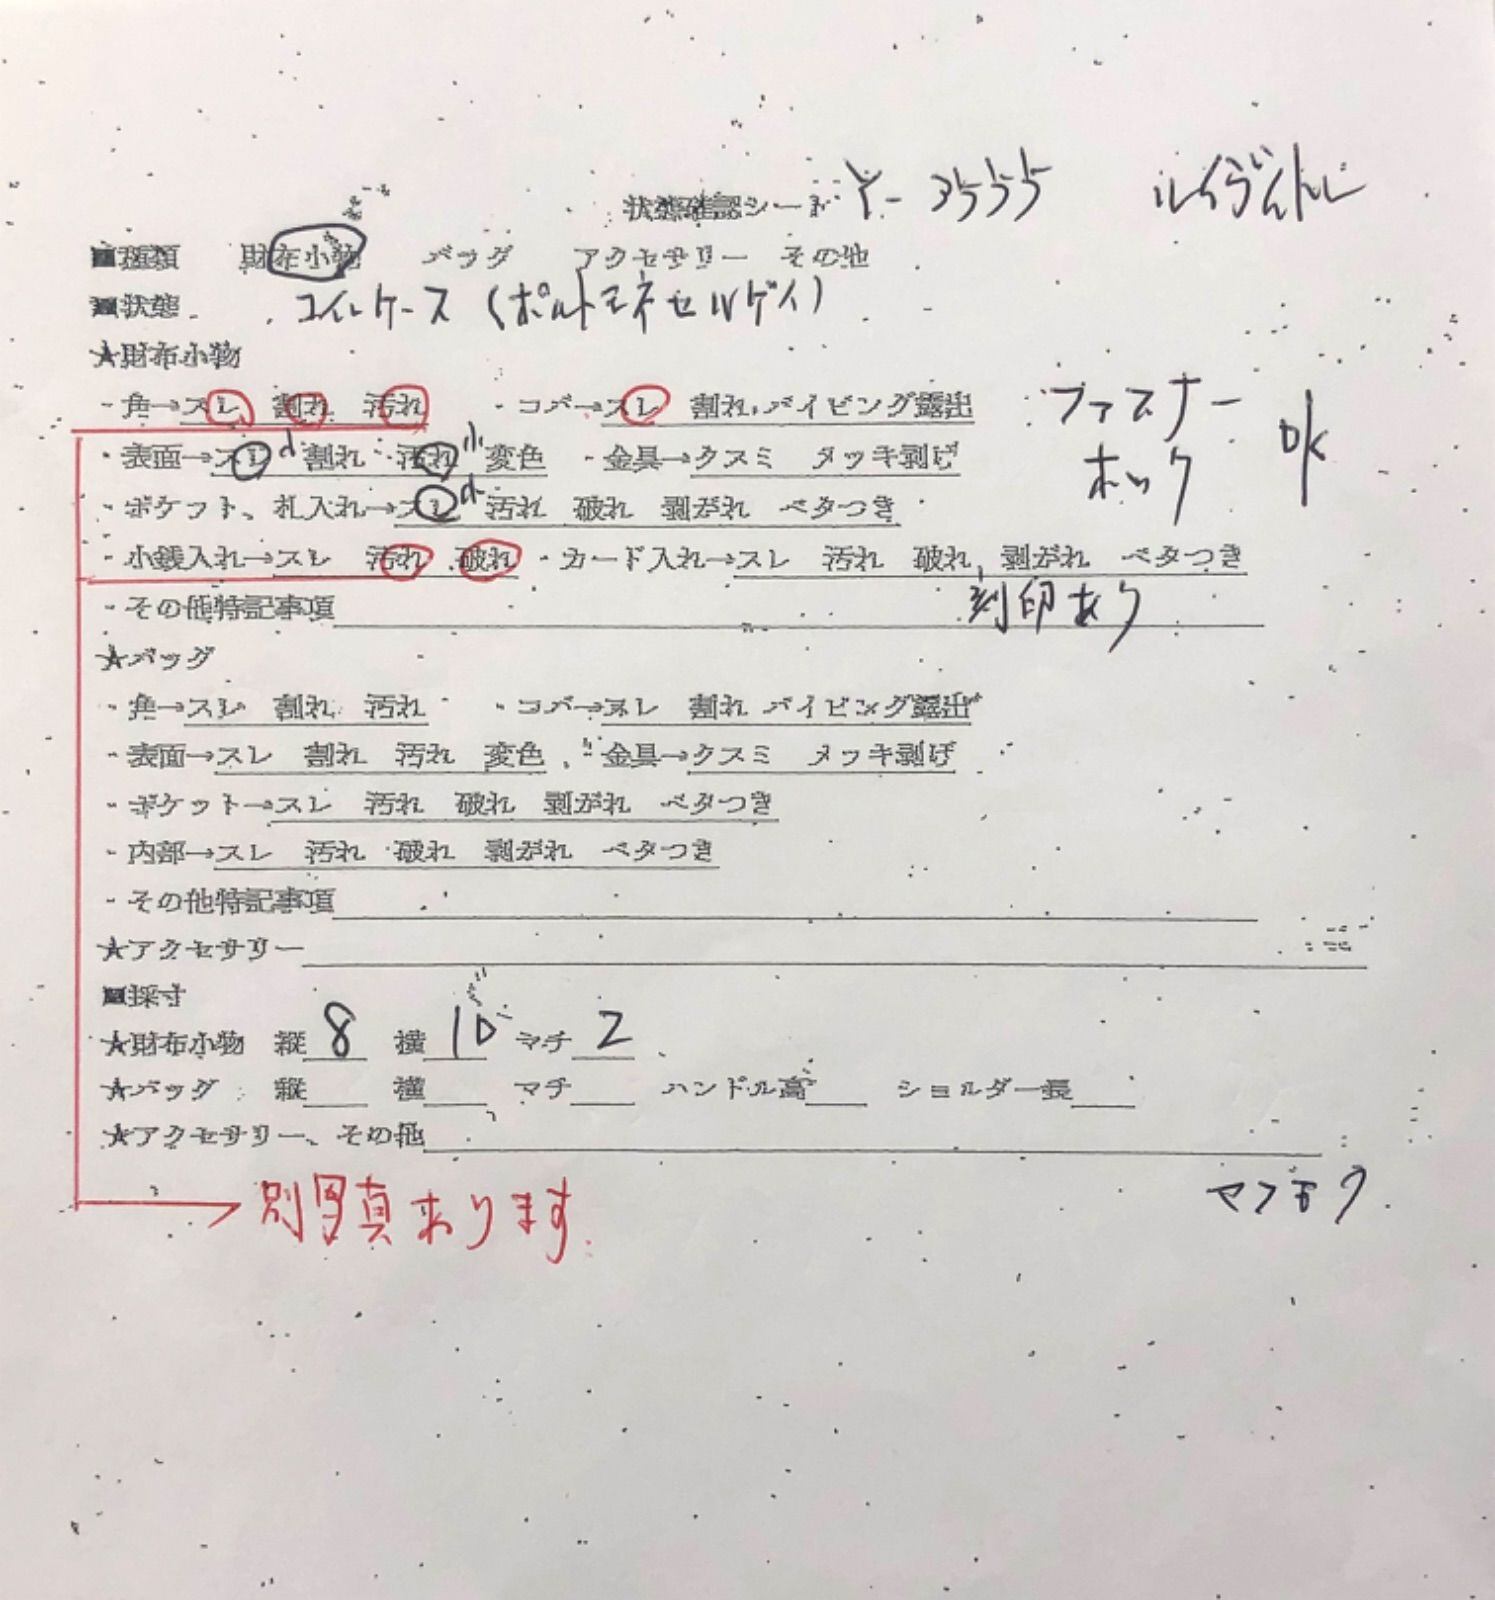 状態確認シート Y-3555 ルイヴィトン
■種類 財布小物 バッグ アクセサリー その他
■状態 コインケース(ポルトモネセルゲイ)
★財布小物
・角→スレ 割れ 汚れ ・コバ→スレ 割れ パイピング露出
ファスナー
・表面→スレ小 割れ 汚れ小 変色 ・金具→クスミ メッキ剥げ
ホック OK
・ポケット、札入れ→スレ小 汚れ 破れ 剥がれ ベタつき
・小銭入れ→スレ 汚れ 破れ ・カード入れ→スレ 汚れ 破れ 剥がれ ベタつき
・その他特記事項 刻印あり
★バッグ
・角→スレ 割れ 汚れ ・コバ→スレ 割れ パイピング露出
・表面→スレ 割れ 汚れ 変色 ・金具→クスミ メッキ剥げ
・ポケット→スレ 汚れ 破れ 剥がれ ベタつき
・内部→スレ 汚れ 破れ 剥がれ ベタつき
・その他特記事項
★アクセサリー
■採寸
★財布小物 縦 8 横 10 マチ 2
★バッグ 縦 横 マチ ハンドル高 ショルダー長
★アクセサリー、その他
→別写真あります